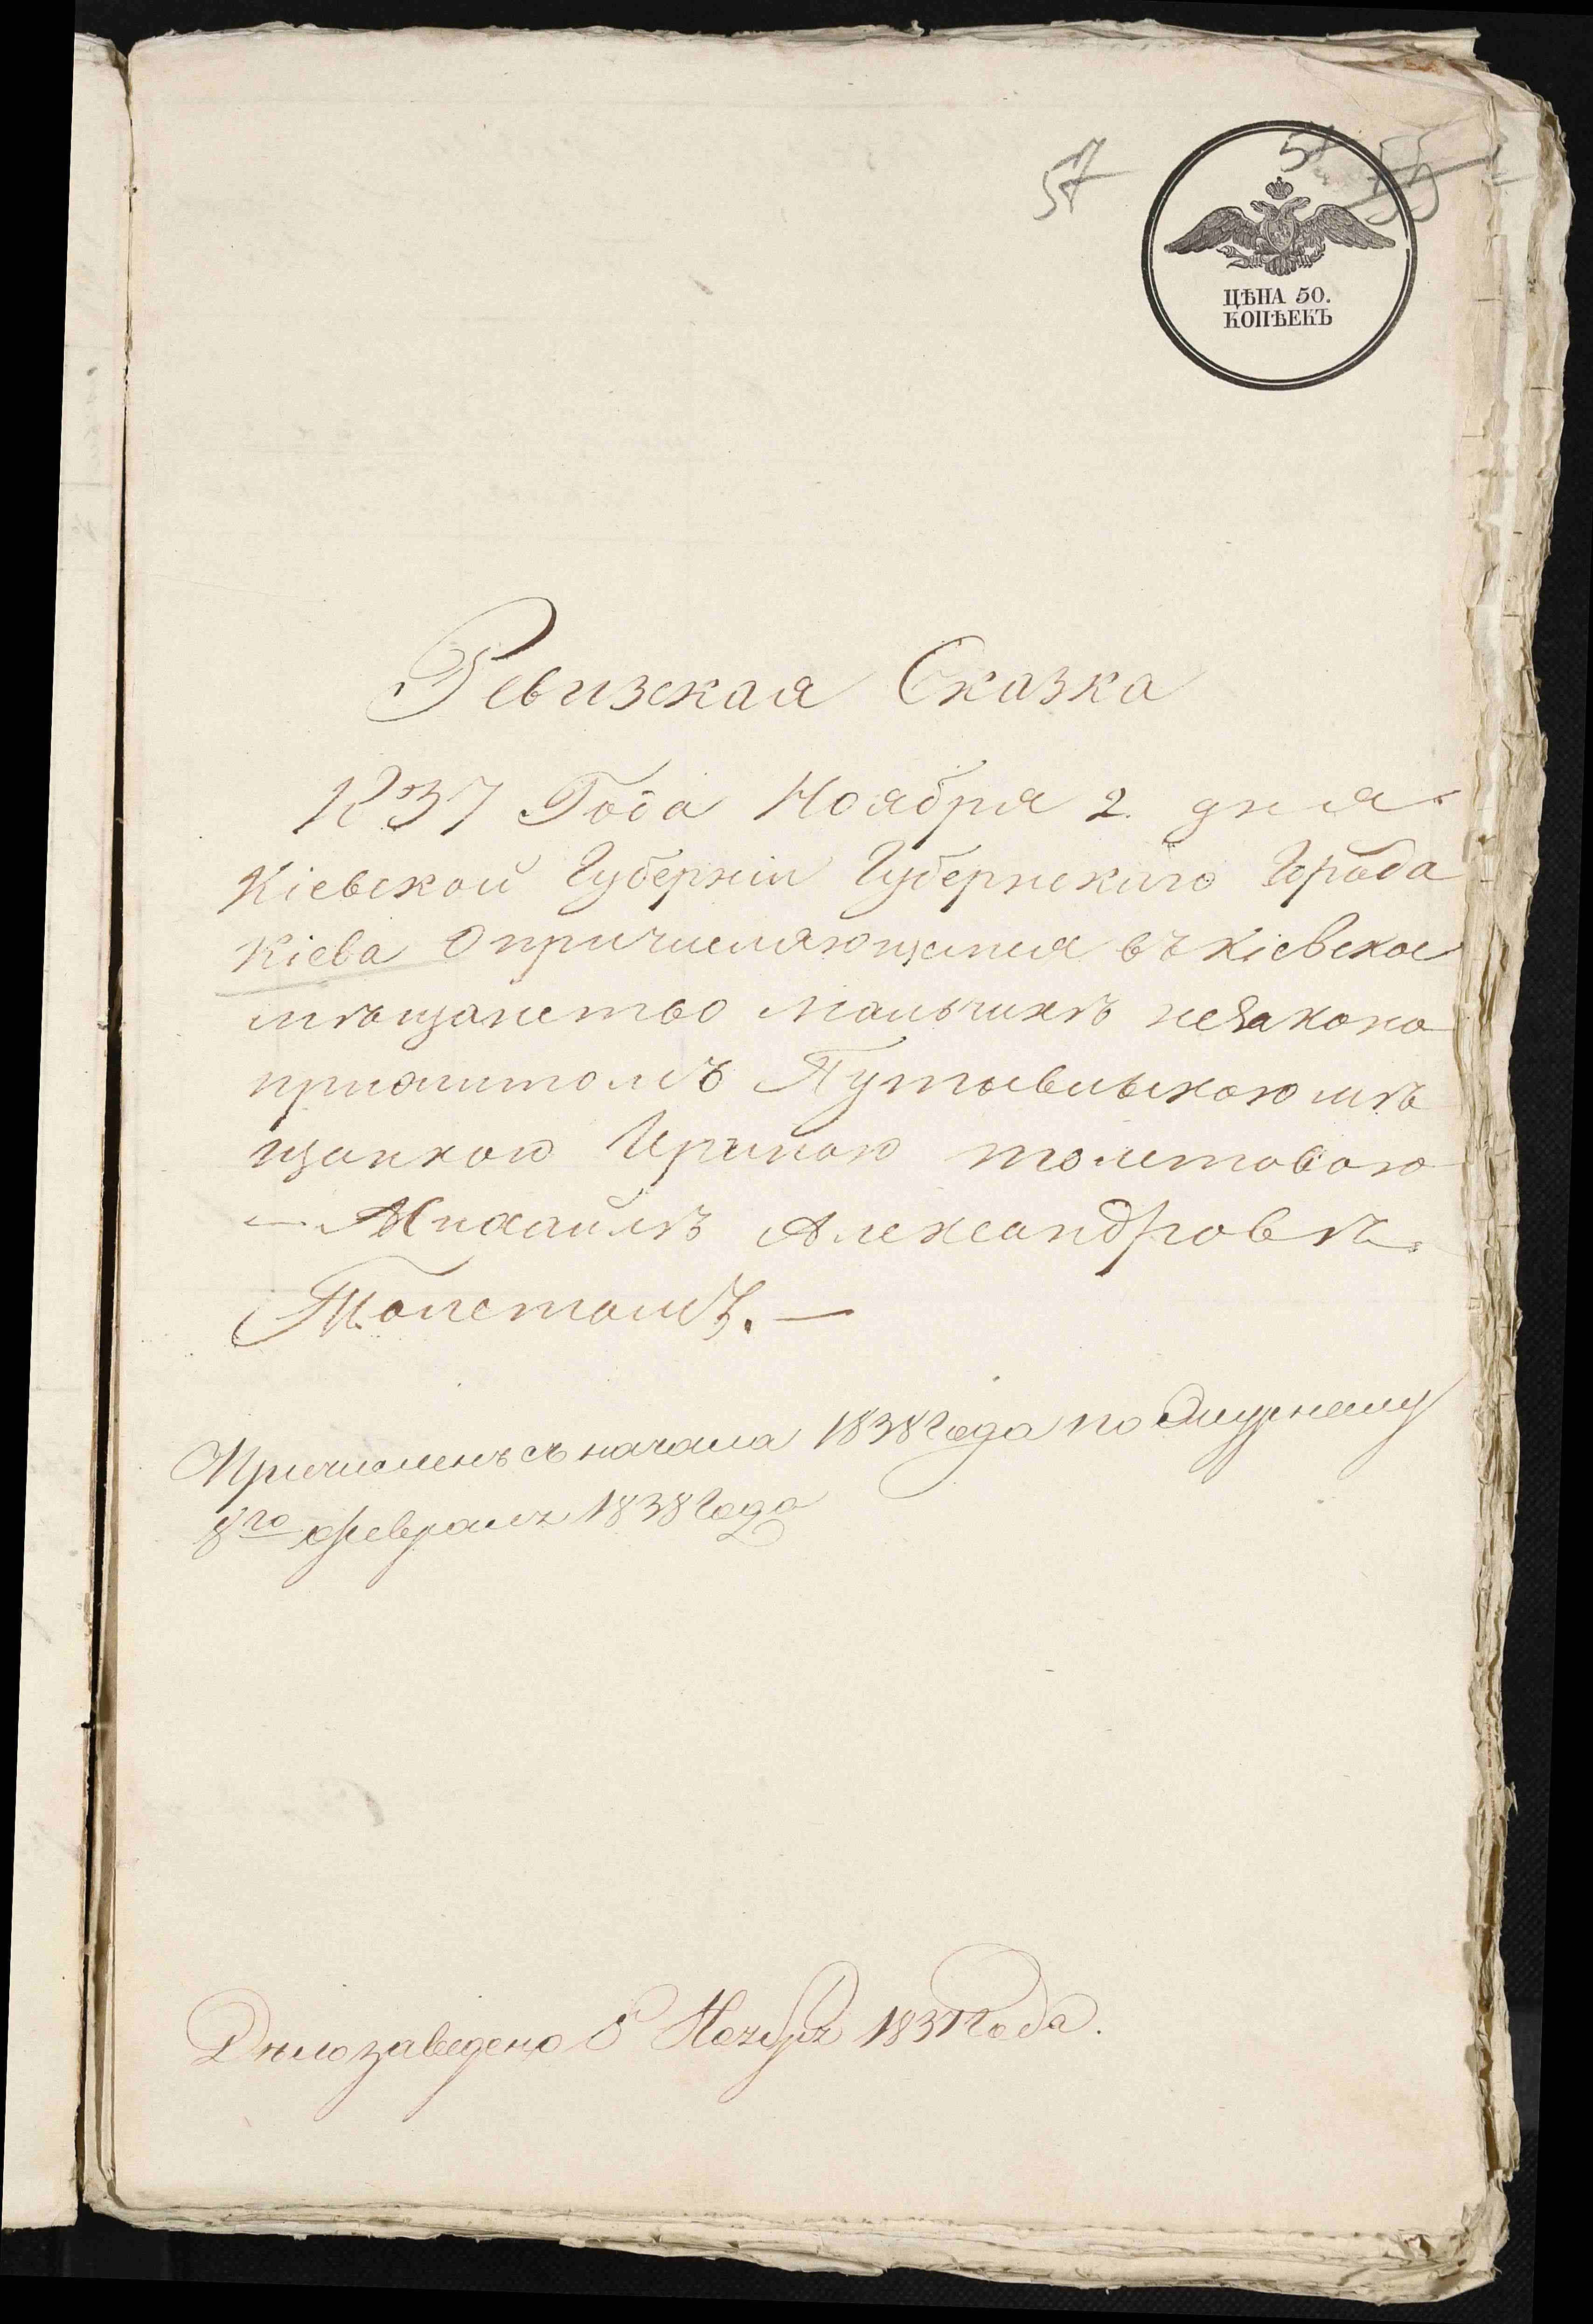 57
57 55
ЦѢНА 50.
КОПѢЕКЪ
Ревизская Сказка
1837 Года Ноября 2. дня
Кіевской Губерніи Губернскаго Города
Кіева О причисляющемся въ кіевское
мѣщанство мальчикѣ незаконо
прижитомъ Путывльскою мѣ
щанкою Ириною толстовою
— Михайлѣ Александровѣ
Толстомъ. —
Причисленъ съ начала 1838 Года по журналу
8го февраля 1838 Года
Дѣло заведено 8 Ноября 1837 Года.